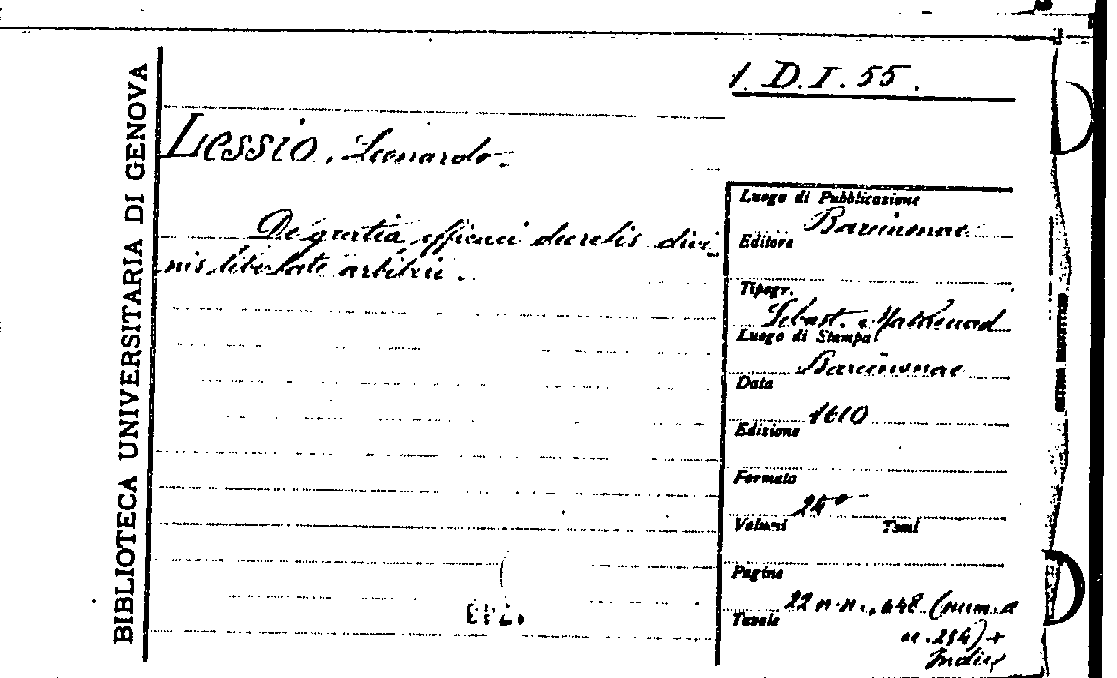 BIBLIOTECA UNIVERSITARIA DI GENOVA
1. D. I. 55.
Lessio, Leonardo.
De gratia efficaci decretis divi-
nis libertate arbitrii.
Luogo di Pubblicazione
Barcinonae
Editore
Tipogr.
Sebast. Mathevad
Luogo di Stampa
Barcinonae
Data
1610
Edizione
Formato
24°
Volumi Tomi
Pagine
22 n.n., 648 (num. a
Tavole
+
Indice